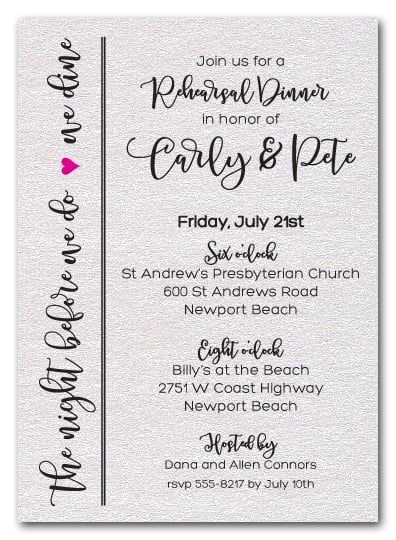 the night before we do we dine
Join us for a
Rehearsal Dinner
in honor of
Carly & Pete
Friday, July 21st
Six o'clock
St Andrew's Presbyterian Church
600 St Andrews Road
Newport Beach
Eight o'clock
Billy's at the Beach
2751 W Coast Highway
Newport Beach
Hosted by
Dana and Allen Connors
rsvp 555-8217 by July 10th